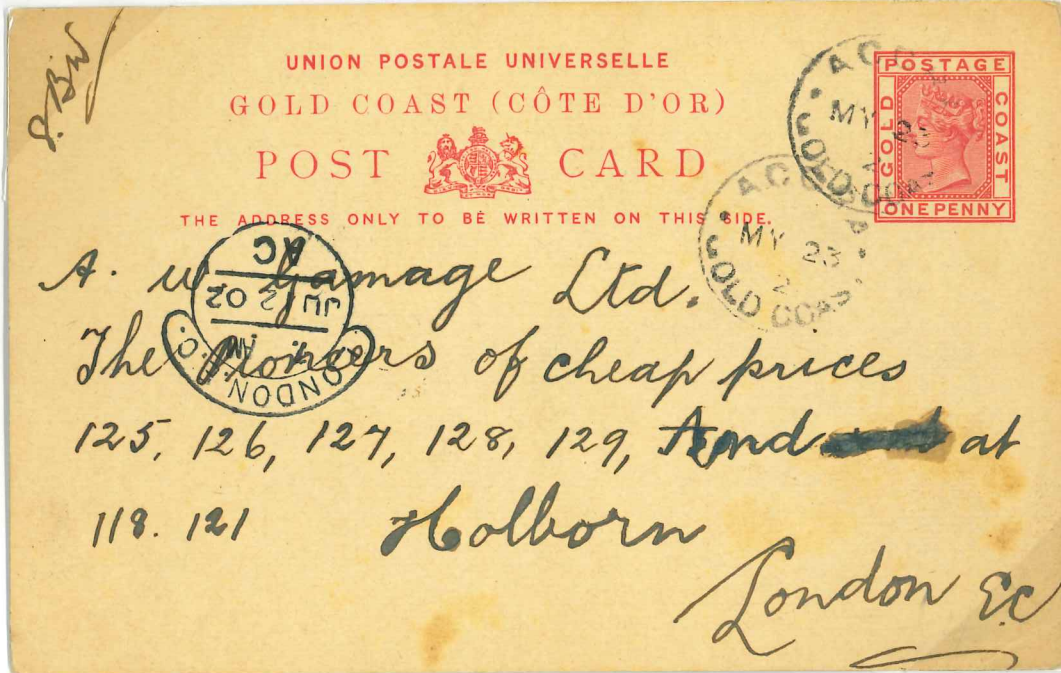 UNION POSTALE UNIVERSELLE
GOLD COAST (CÔTE D'OR)
POST CARD
THE ADDRESS ONLY TO BE WRITTEN ON THIS SIDE.
POSTAGE
GOLD COAST
ONE PENNY
ACCRA
MY 23
2
GOLD COAST
ACCRA
MY 23
2
GOLD COAST
A. W Gamage Ltd.
The Pioneers of cheap prices
125, 126, 127, 128, 129, And at
118. 121 Holborn
London E.C
AC
JU 2 02
LONDON